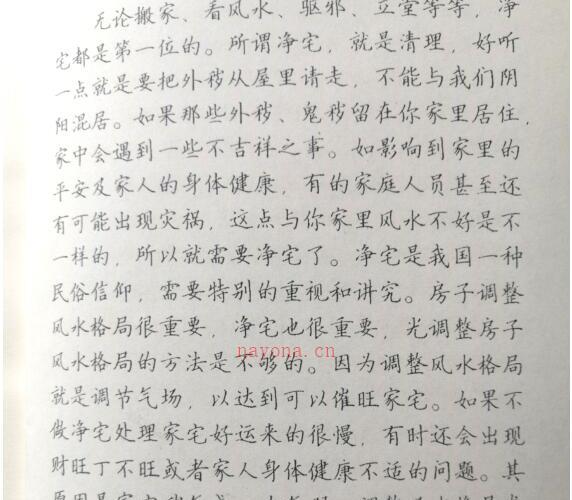 无论搬家、看风水、驱邪、立堂等等，净
宅都是第一位的。所谓净宅，就是清理，好听
一点就是要把外秽从屋里请走，不能与我们阴
阳混居。如果那些外秽、鬼秽留在你家里居住，
家中会遇到一些不吉祥之事。如影响到家里的
平安及家人的身体健康，有的家庭人员甚至还
有可能出现灾祸，这点与你家里风水不好是不
一样的，所以就需要净宅了。净宅是我国一种
民俗信仰，需要特别的重视和讲究。房子调整
风水格局很重要，净宅也很重要，光调整房子
风水格局的方法是不够的。因为调整风水格局
nayona.cn
就是调节气场，以达到可以催旺家宅。如果不
做净宅处理家宅好运来的很慢，有时还会出现
财旺丁不旺或者家人身体健康不适的问题。其